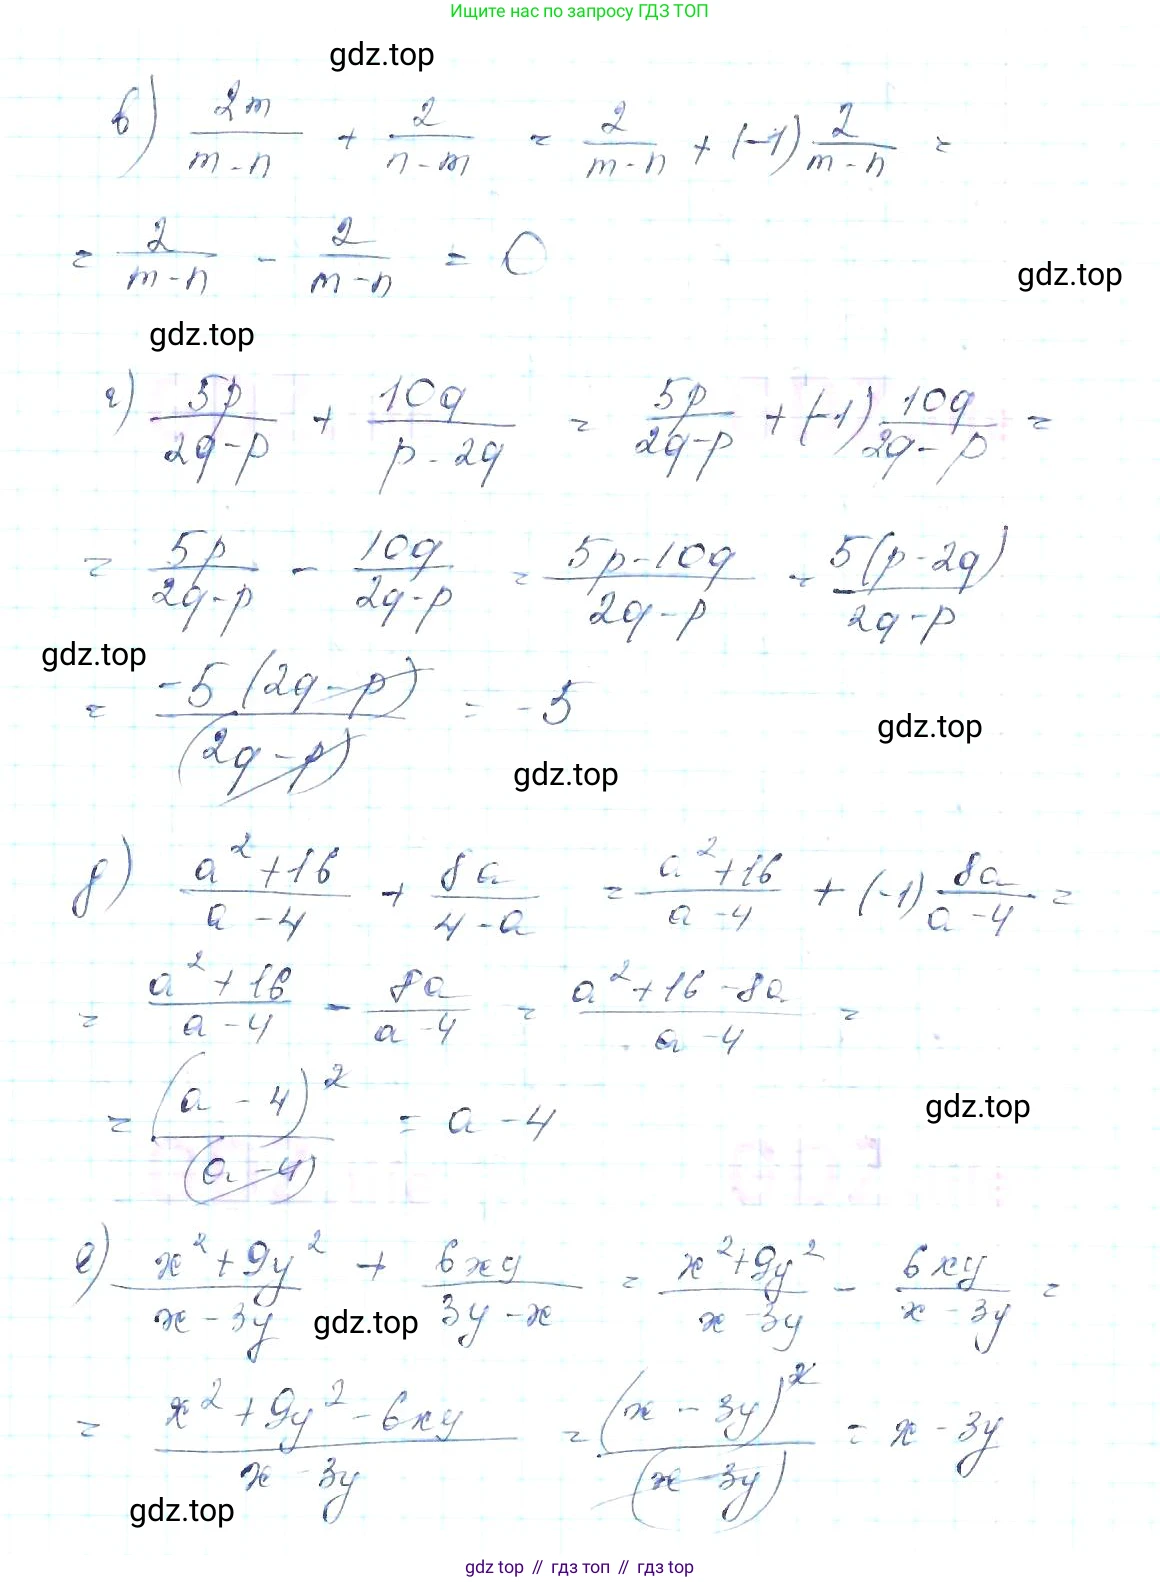 Ищите нас по запросу ГДЗ ТОП
gdz.top
в) 2m/(m-n) + 2/(n-m) = 2/(m-n) + (-1) 2/(m-n) =
= 2/(m-n) - 2/(m-n) = 0
gdz.top
gdz.top
г) 5p/(2q-p) + 10q/(p-2q) = 5p/(2q-p) + (-1) 10q/(2q-p) =
= 5p/(2q-p) - 10q/(2q-p) = (5p-10q)/(2q-p) = 5(p-2q)/(2q-p)
gdz.top
= -5(2q-p)/(2q-p) = -5
gdz.top
gdz.top
д) (a²+16)/(a-4) + 8a/(4-a) = (a²+16)/(a-4) + (-1) 8a/(a-4) =
= (a²+16)/(a-4) - 8a/(a-4) = (a²+16-8a)/(a-4) =
= (a-4)²/(a-4) = a-4
gdz.top
е) (x²+9y²)/(x-3y) + 6xy/(3y-x) = (x²+9y²)/(x-3y) - 6xy/(x-3y) =
gdz.top
= (x²+9y²-6xy)/(x-3y) = (x-3y)²/(x-3y) = x-3y
gdz.top
gdz.top // гдз топ // gdz top